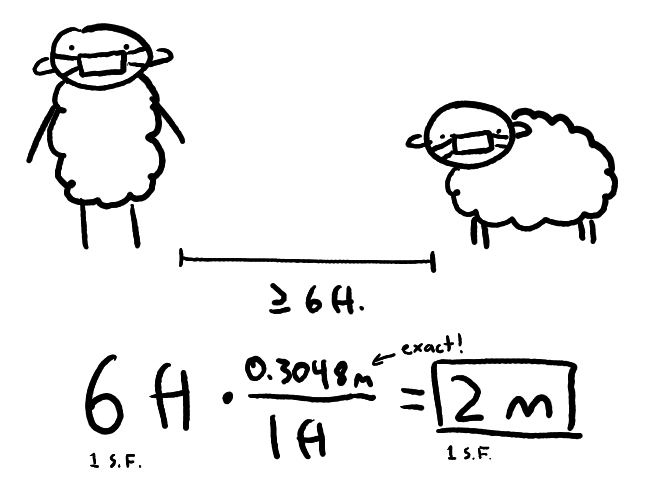 ≥ 6 ft.
exact!
6 ft · 0.3048m / 1 ft = 2 m
1 S.F. 1 S.F.